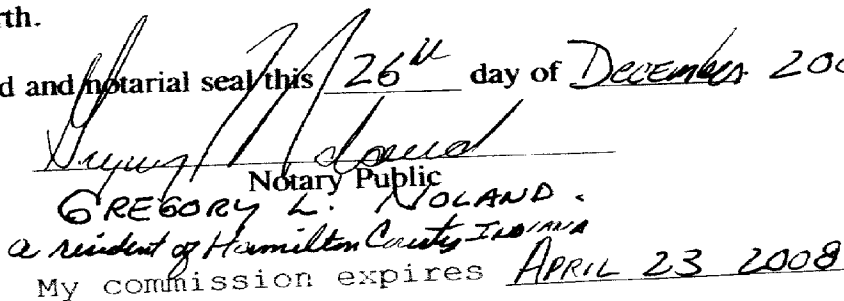 rth.
d and notarial seal this 26th day of December 200
Notary Public
GREGORY L. NOLAND.
a resident of Hamilton County INDIANA
My commission expires APRIL 23 2008